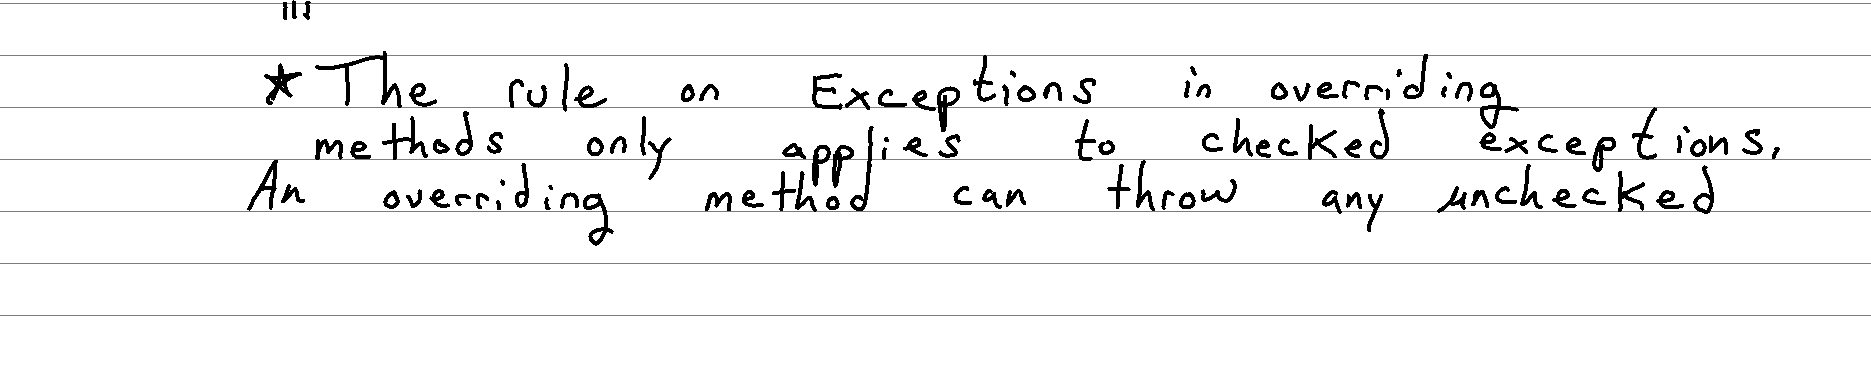 ★ The rule on Exceptions in overriding
methods only applies to checked exceptions.
An overriding method can throw any unchecked